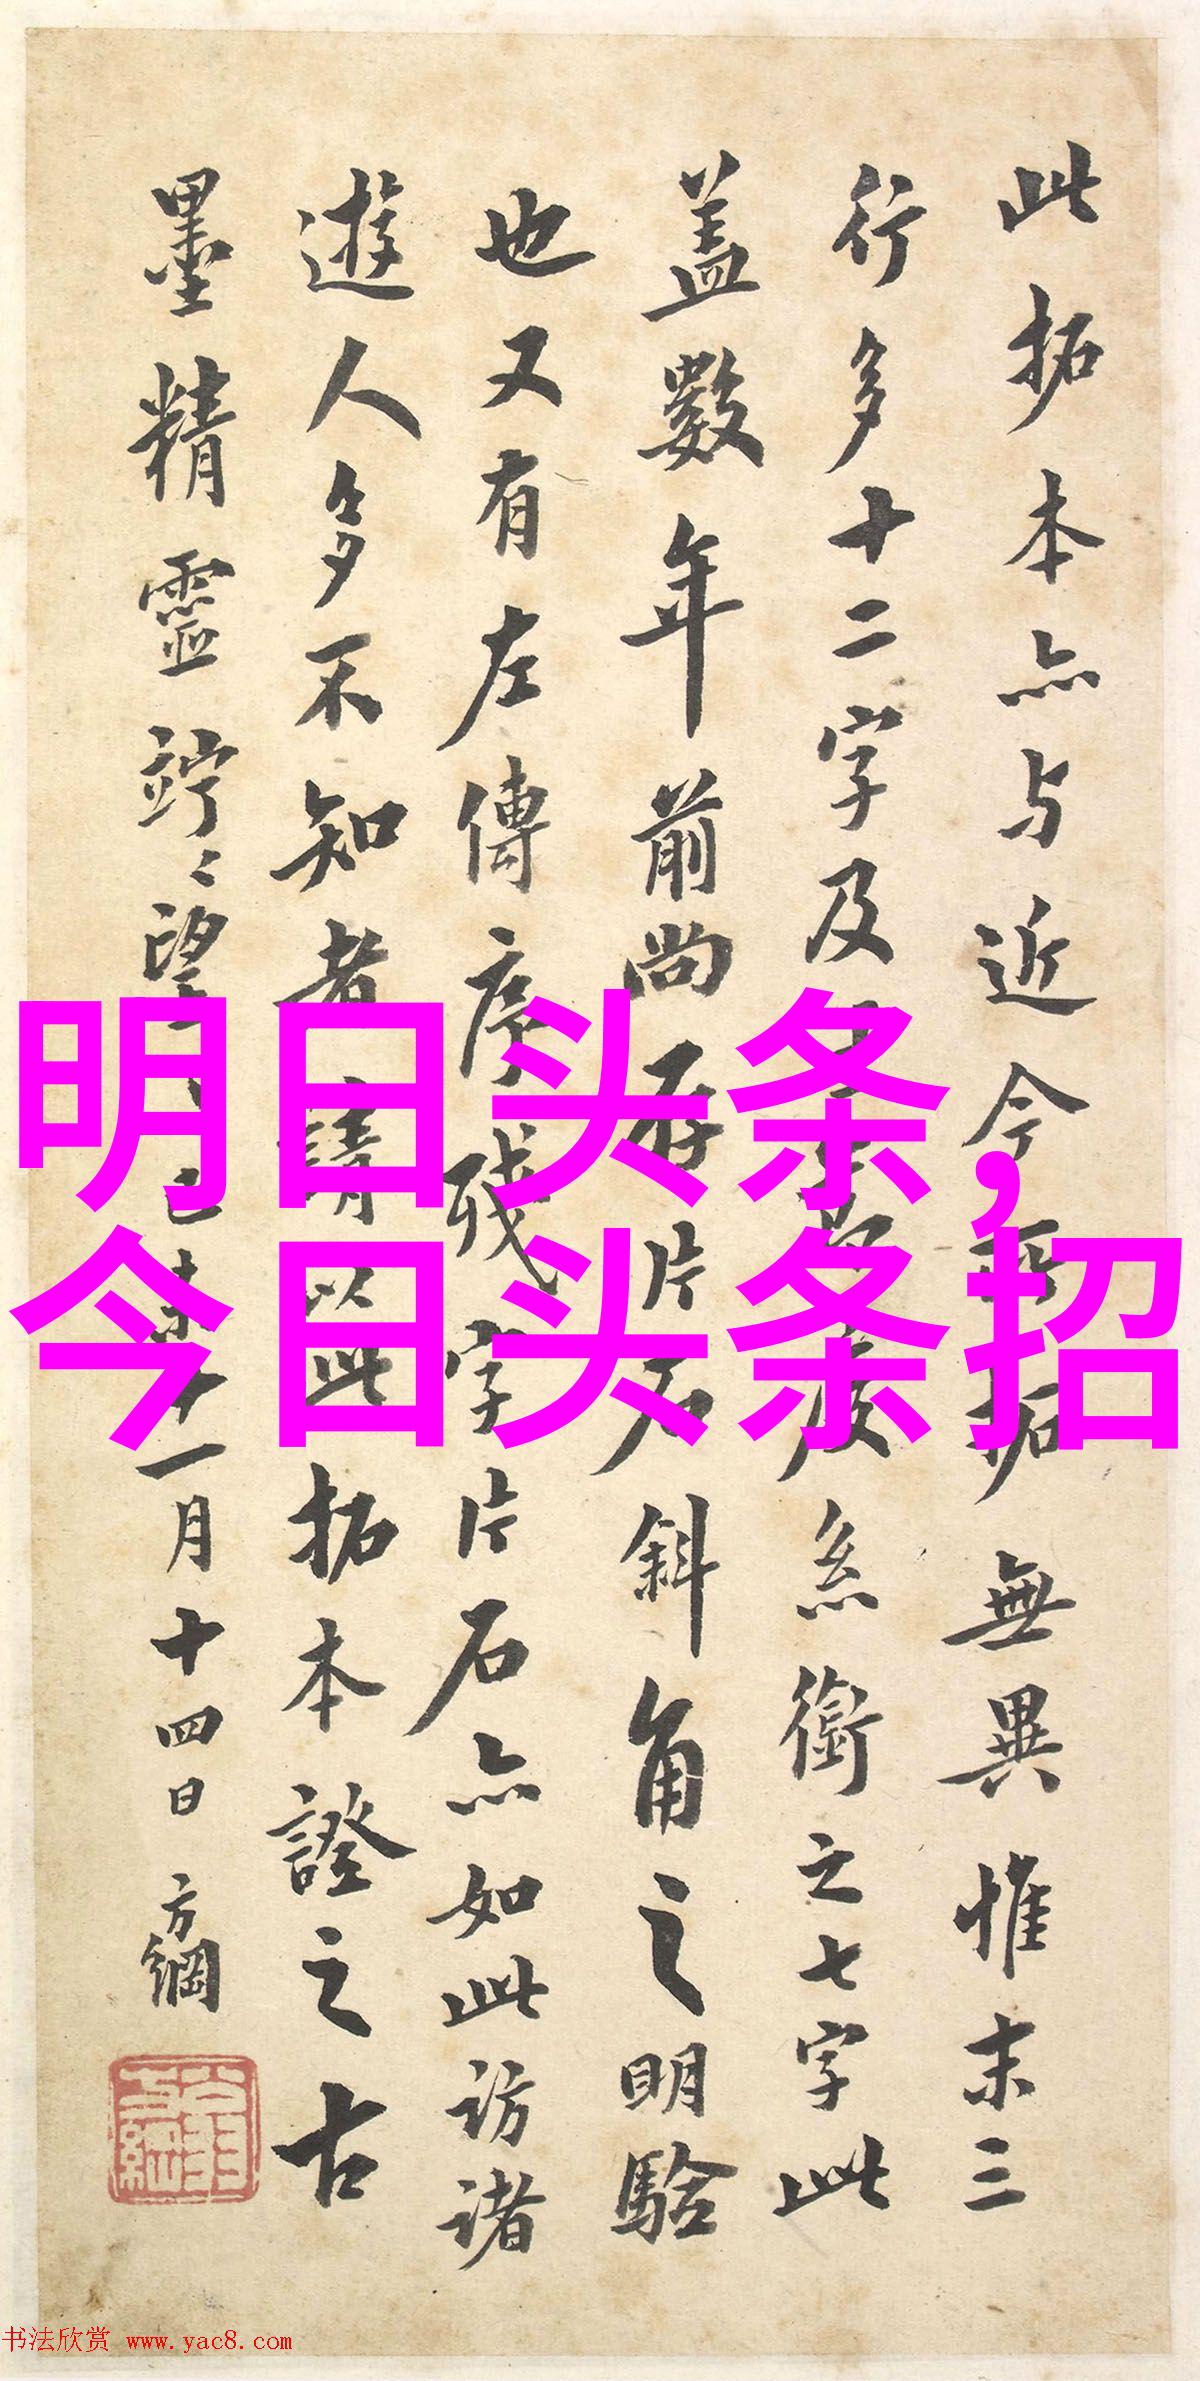 此拓本亦与近今所拓無異惟末三
行多十二字及
糸銜之七字此
蓋數年前尚存片石斜角之明驗
也又有左傳序残字片石亦如此访诸
遊人多不知者請以此拓本證之古
墨精靈竚〻望
已未十一月十四日方綱
明日头条,
今日头条招
书法欣赏 www.yac8.com